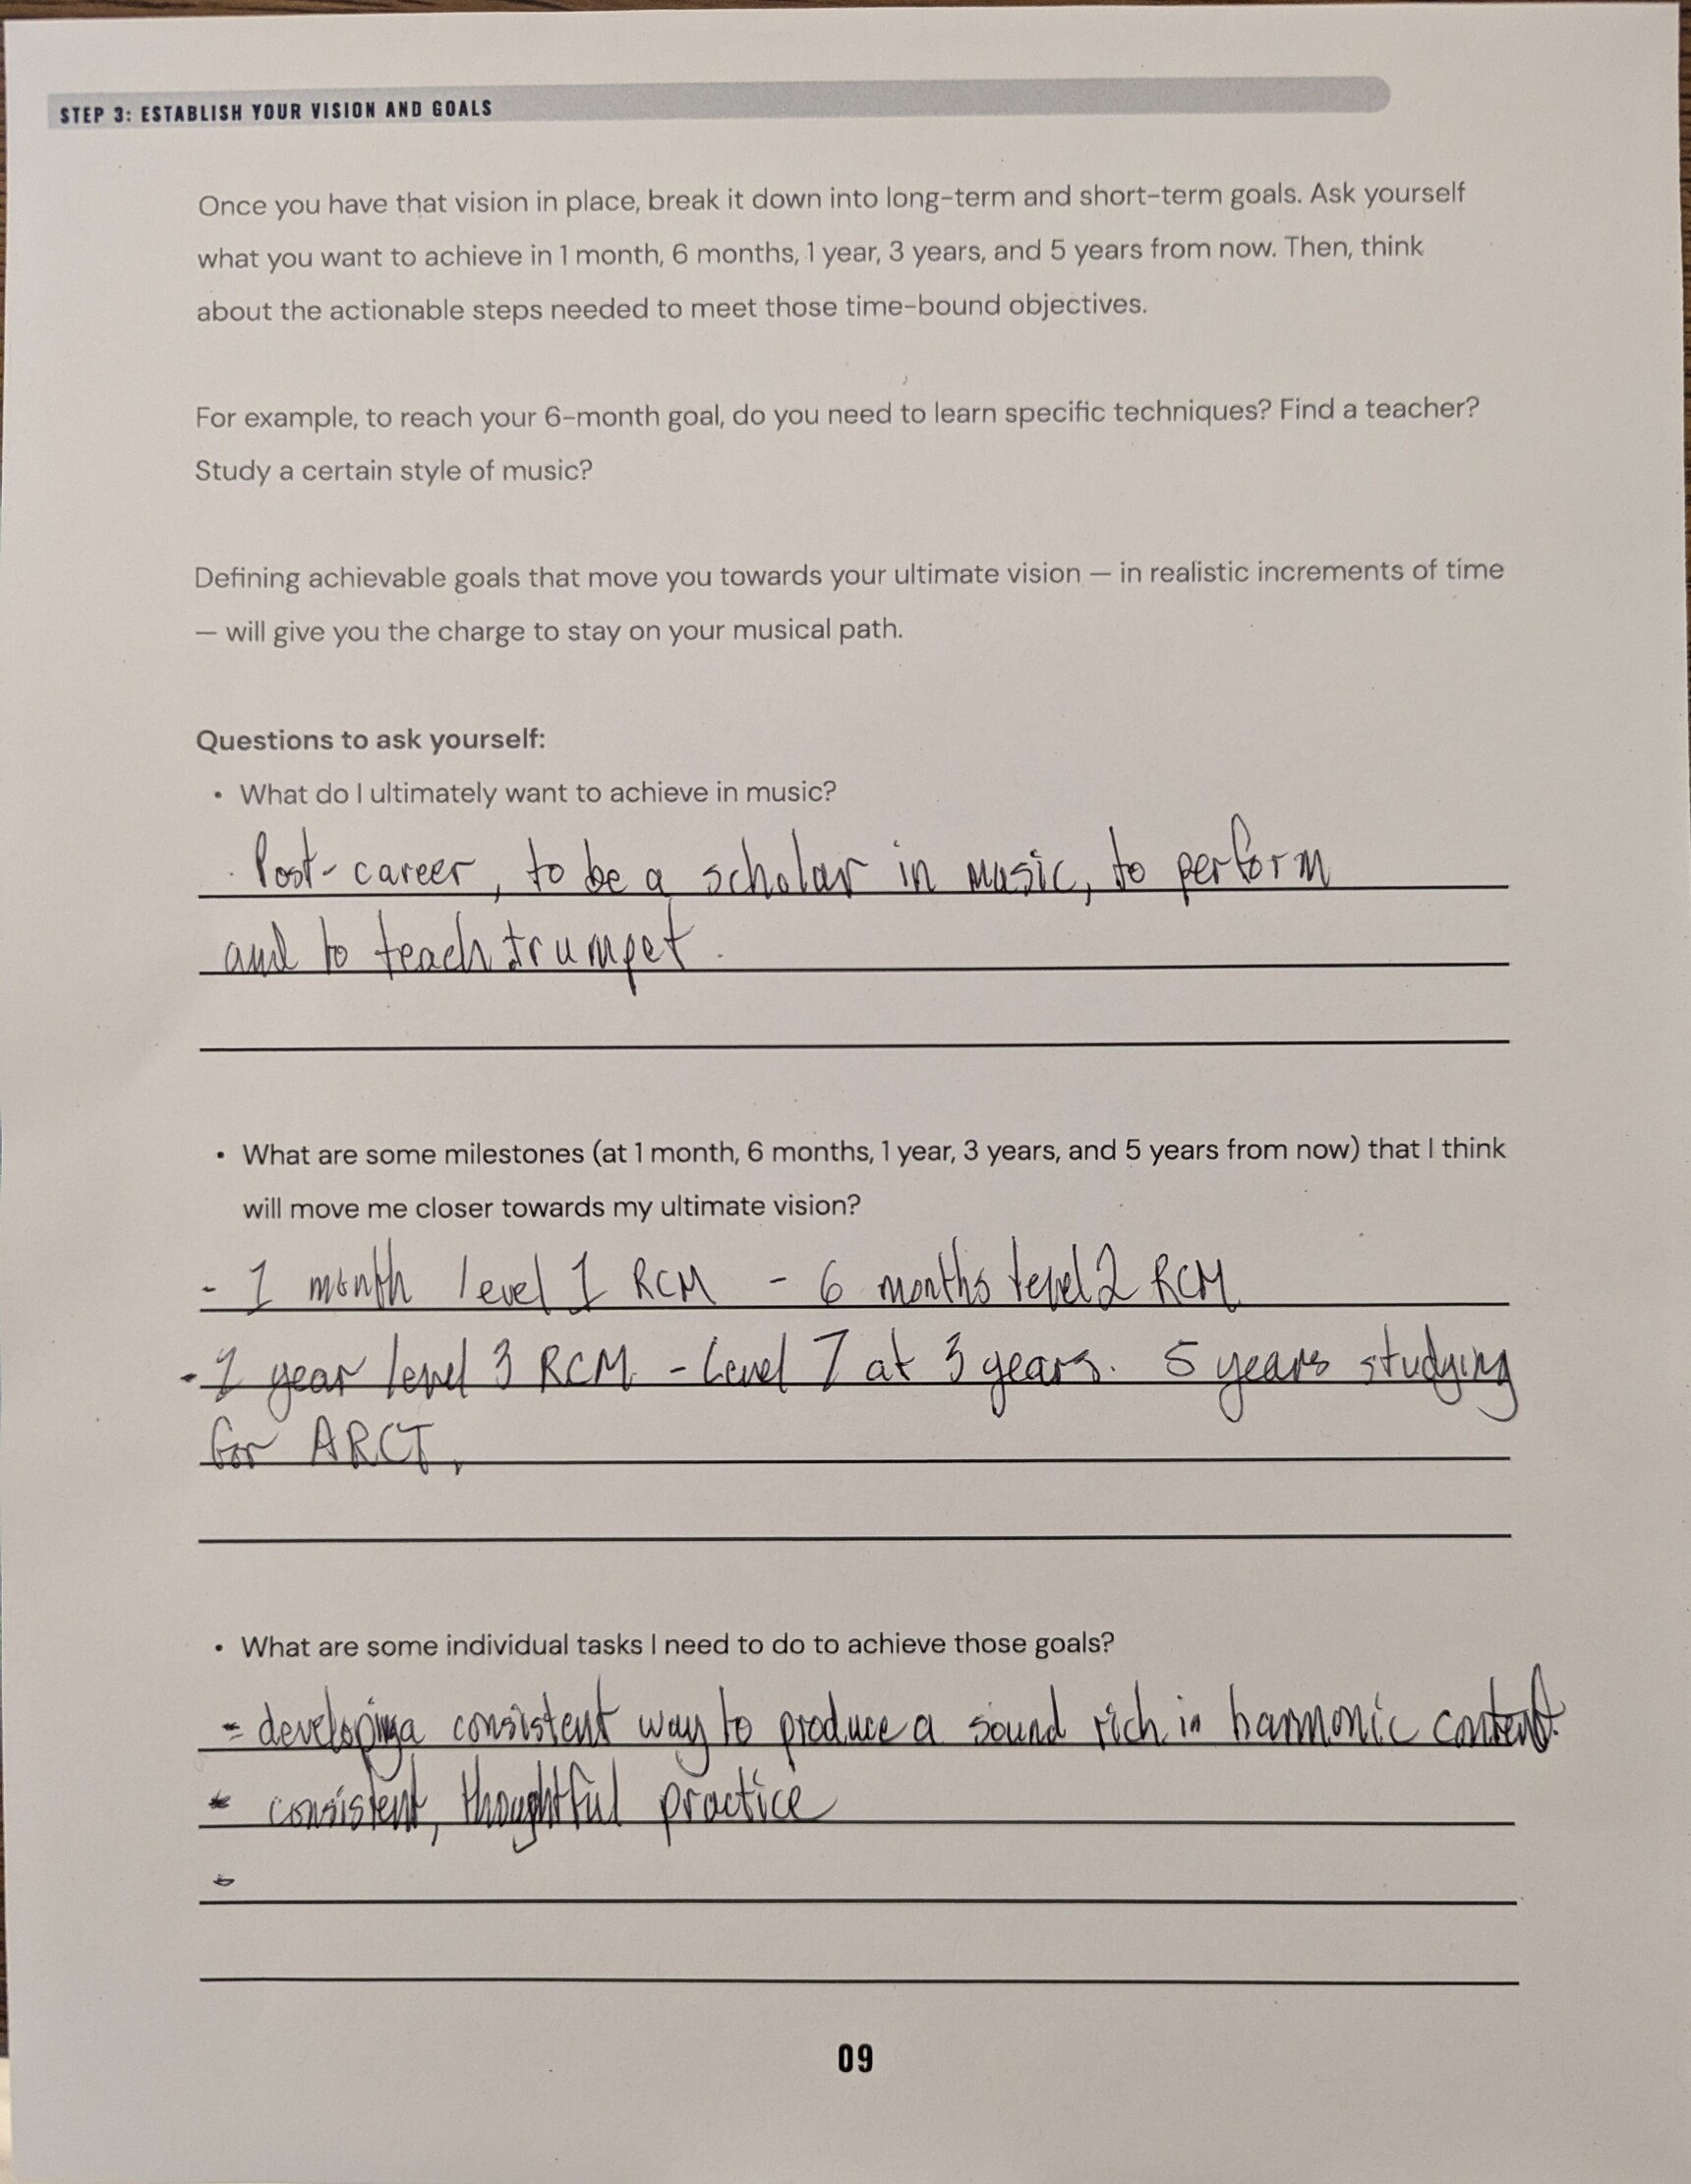 STEP 3: ESTABLISH YOUR VISION AND GOALS
Once you have that vision in place, break it down into long-term and short-term goals. Ask yourself
what you want to achieve in 1 month, 6 months, 1 year, 3 years, and 5 years from now. Then, think
about the actionable steps needed to meet those time-bound objectives.
For example, to reach your 6-month goal, do you need to learn specific techniques? Find a teacher?
Study a certain style of music?
Defining achievable goals that move you towards your ultimate vision — in realistic increments of time
— will give you the charge to stay on your musical path.
Questions to ask yourself:
• What do I ultimately want to achieve in music?
Post-career, to be a scholar in music, to perform
and to teach trumpet.
• What are some milestones (at 1 month, 6 months, 1 year, 3 years, and 5 years from now) that I think
will move me closer towards my ultimate vision?
- 1 month level 1 RCM - 6 months level 2 RCM
- 1 year level 3 RCM. - Level 7 at 3 years. 5 years studying
for ARCT,
• What are some individual tasks I need to do to achieve those goals?
- developing a consistent way to produce a sound rich in harmonic content.
- consistent, thoughtful practice
-
09